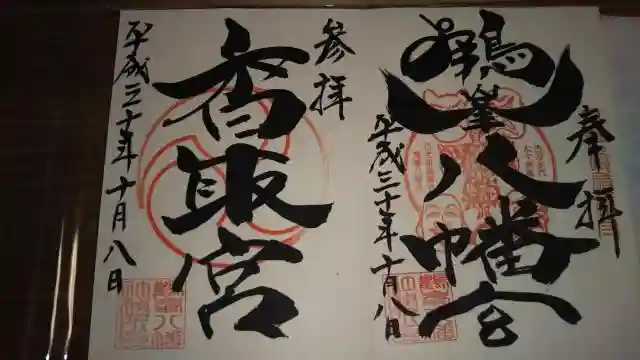 奉拝
鶴峯八幡宮
平成三十年十月八日
参拝
香取宮
平成三十年十月八日